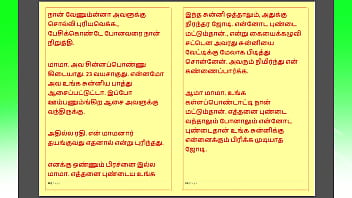 நான் வேணும்னா அவளுக்கு
சொல்லி புரியவெக்க..,
பேசிக்கொண்டே போனவரை நான்
நிறுத்தி.
மாமா. அவ சின்னப்பொண்ணு
கிடையாது. 23 வயசாகுது. என்னமோ
அவ உங்க சுன்னிய பாத்து
ஆசைப்பட்டுட்டா. இப்போ
ஊம்பனும்ங்கிற ஆசை அவளுக்கு
வந்திருக்கு.
அதில்லாதி. என் மாமனார்
தயங்குவது எதனால் என்று புரிந்தது.
எனக்கு ஒண்ணும் பிரசனை இல்ல
மாமா. எத்தனை புண்டைய உங்க
இந்த சுன்னி ஒத்தாலும், அதுக்கு
நிரந்தர ஜோடி. என்னோட புண்டை
மட்டும்தான்.., என்று கையைக்கழுவி
சட்டென அவரது சுன்னியை
வேட்டிக்கு மேலாக பிடித்து
சொன்னேன். அவரும் நிமிர்ந்து என்
கண்ணைப்பார்க்க.
ஆமா மாமா. உங்க
கள்ளப்பொண்டாட்டி நான்
மட்டும்தான். எத்தனை புண்டை
வந்தாலும் போனாலும் என்னோட
புண்டைதான் உங்க சுன்னிக்கு
என்னைக்கும் பிரிக்க முடியாத
ஜோடி.